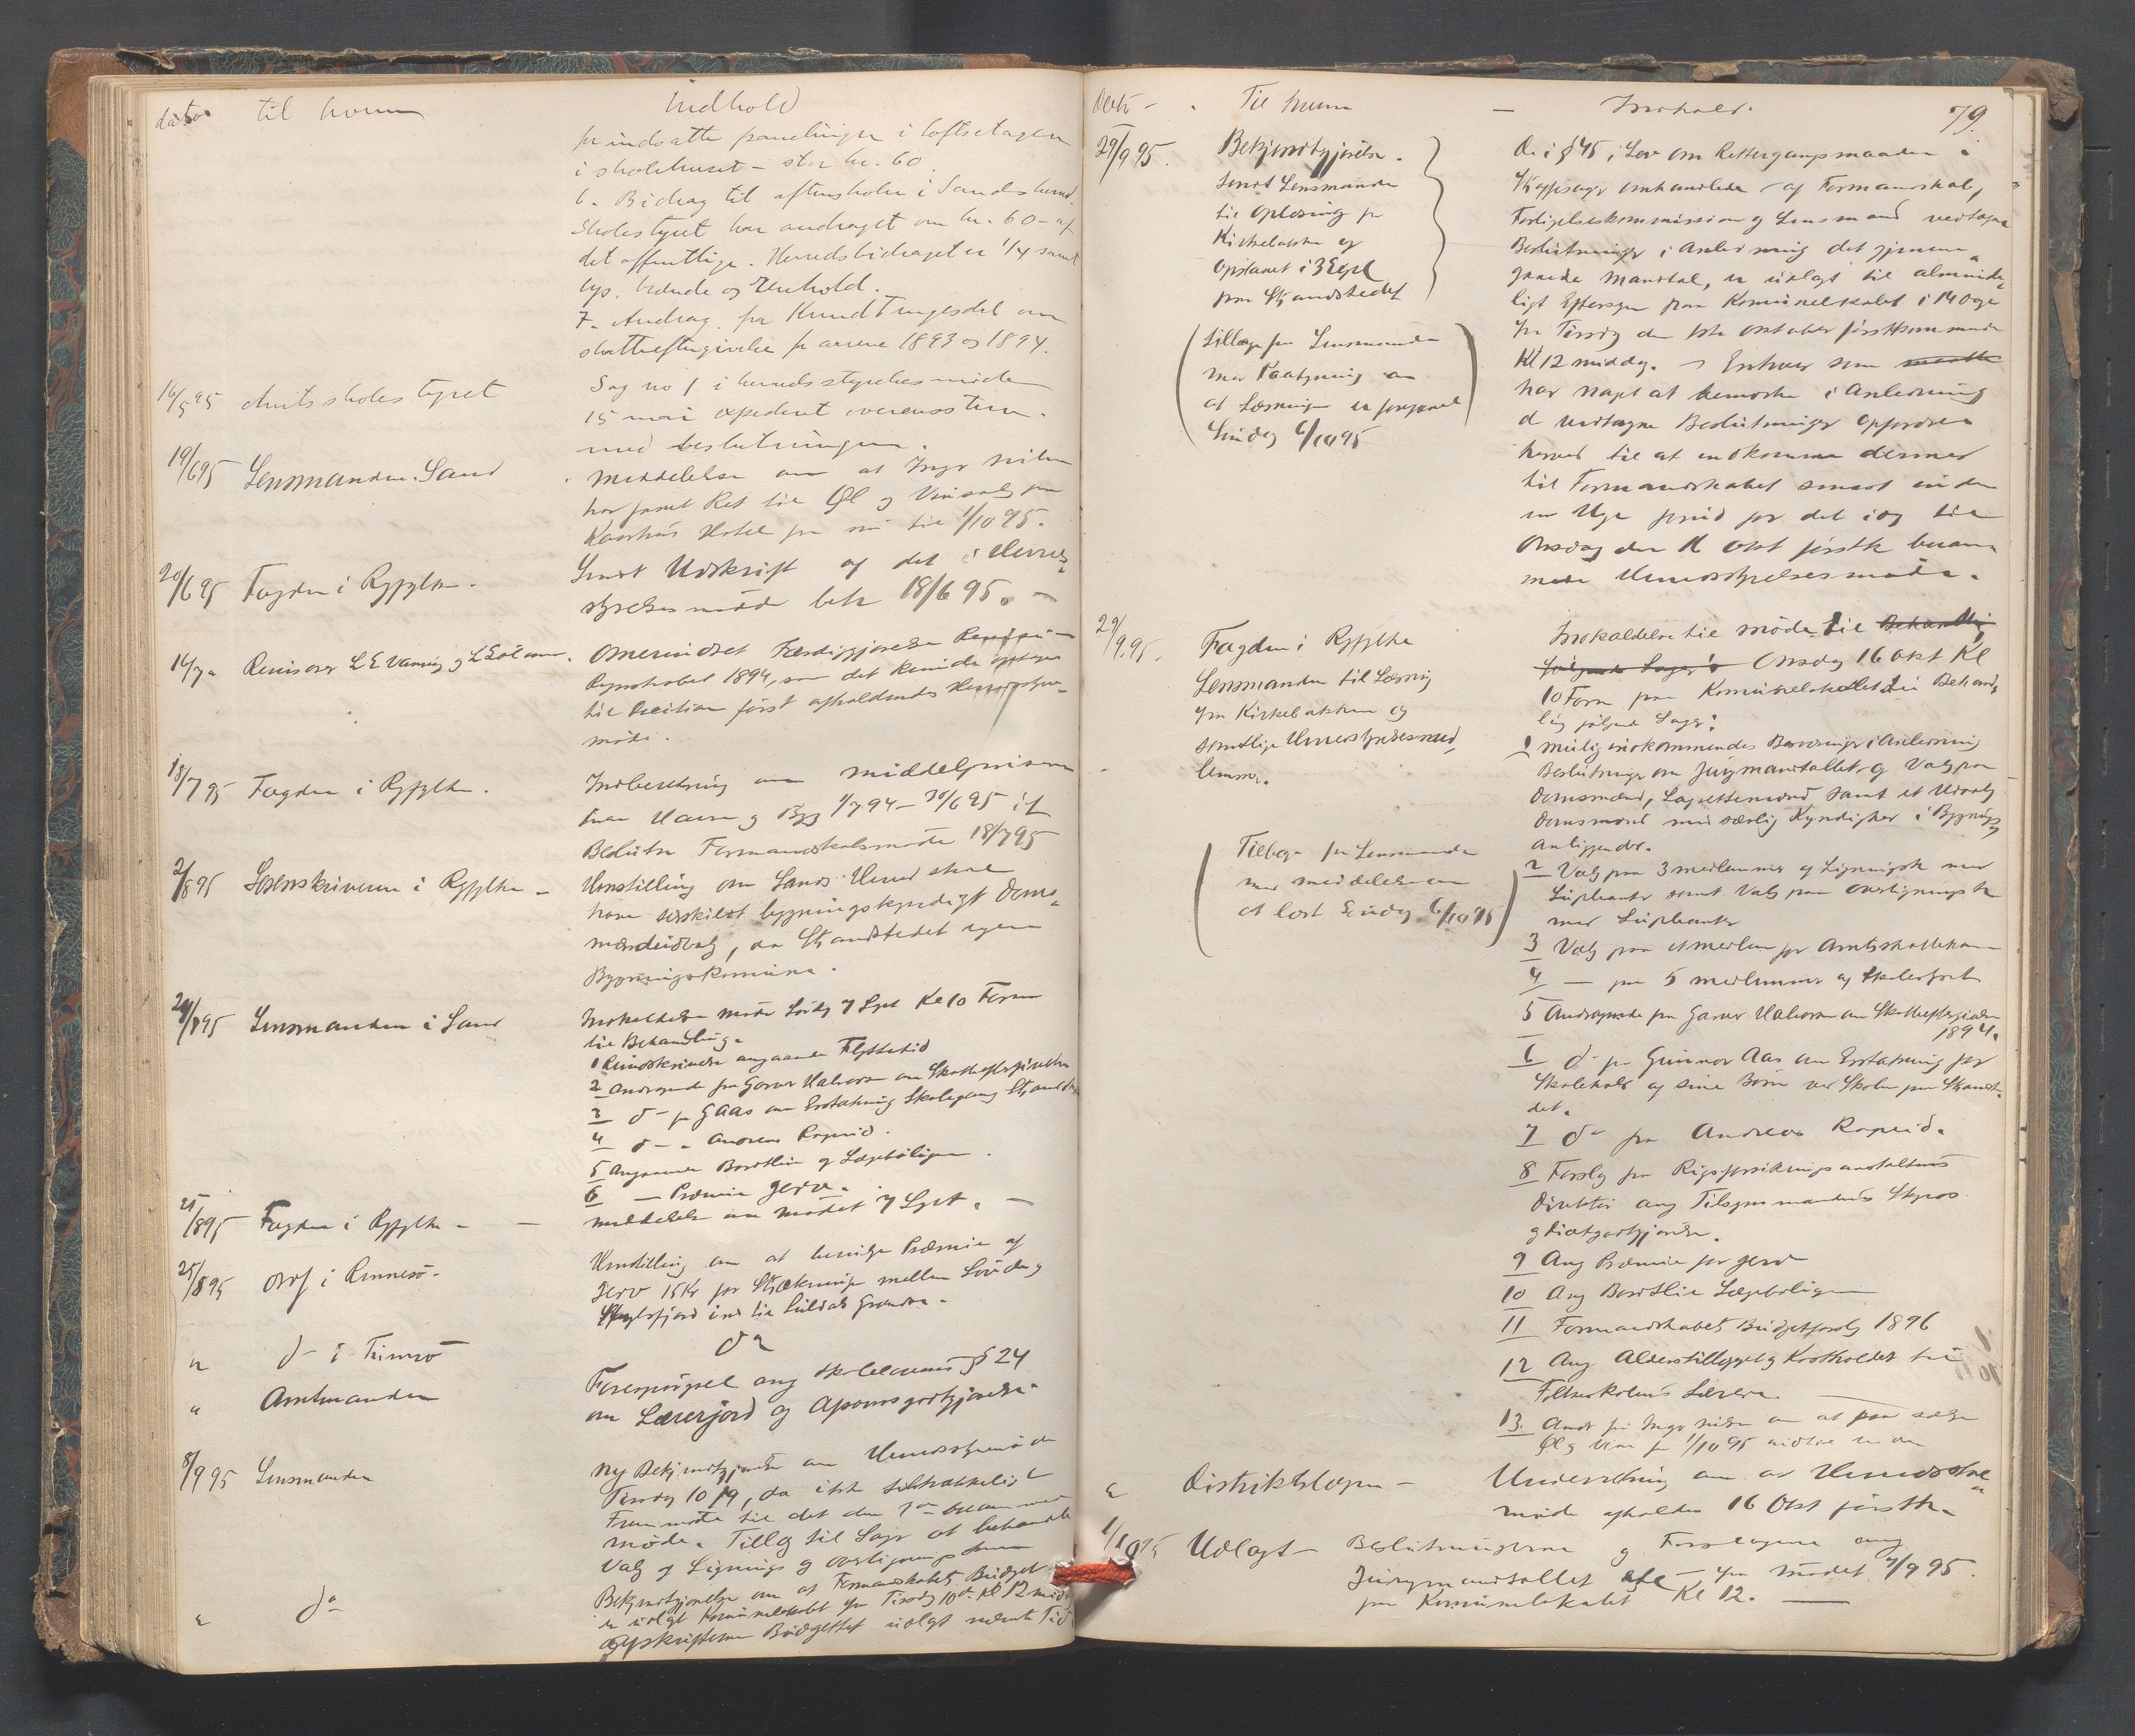 dato til hvem Indhold
for indsatte panelinger i loftsetagen
i skolehuset – stor kr. 60
6. Bidrag til aftenskolen i Sands herred.
Skolestyret har andraget om kr. 60 – af
det offentlige. Herredsbidraget er 1/4 samt
lys, brænde og renhold.
7. Andrag fra Knud Tengesdal om
skatteeftergivelse for aarene 1893 og 1894.
16/5 95 Amtsskolestyret Sag no 1 i herredsstyrelsesmøde
15 mai expederet overensstem.
med beslutningen.
19/6 95 Lensmanden. Sand Meddelelse om at Ingv Nilsen
har faaet Ret til Øl og Vinsalg
Hotel fra nu til 1/10 95.
20/6 95 Fogden i Ryfylke. Sendt Udskrift af det i Herreds-
styrelsesmøde beh 18/6 95. –
14/7 Revisorer L E Vaning og Omarbeidet
Regnskabet 1894, saa det kunde optages
til Decision først afholdendes
møde.
18/7 95 Fogden i Ryfylke. Indberetning om middelprisen
Havre og Byg 1/7 94 – 30/6 95 if
Beslutn Formandskabsmøde 18/7 95
2/8 95 Sorenskriveren i Ryfylke – Henstilling om Sands Herred skal
have særskildt bygningskyndigt Doms-
mændsudvalg, da Strandstedet egen
Bygningskommune.
24/8 95 Lensmanden i Sand Indkaldelse møde Lørdag 7 Sept Kl 10 Form
til Behandling.
1 Rundskrivelse angaaende Flyttetid
2 Andragende fra Garver Halvorsen om Skatteeftergivelse
3 do fra G Aas om Erstatning Skolegang Strandsted
4 do – " Andreas
5 Angaaende Bordtlie og Lægebolig
6 – Præmie Jerv.
25/8 95 Fogden i Ryfylke – – meddelelse om mødet 7 Sept. –
25/8 95 Ordf i Rennesø. Henstilling om at bevilge Præmie af
Jerv 15 Kr for Strækningen mellem
ind til Suldals Grændse.
" do i do
" Amtmanden Forespørgsel ang Skolelovens § 24
om Lærerjord og
8/9 95 Lensmanden Ny Bekjendtgjørelse om Herredsstyremøde
Tirsdag 10/9, da ikke tilstrækkeligt
Fremmøte til det den 7de
møde. Tillæg til Sager at behandle
Valg af Lignings og overligningskom
" do Bekjendtgjørelse om at Formandskabets Budget
er udlagt Kommunelokalet fra Tirsdag 10de Kl 12 midd
Budgettet udlagt nævnte Tid
Dato – . Til hvem – Indhold. 79.
29/9 95. Bekjendtgjørelse. De i § 45 i Lov om Rettergangsmaaden i
sendt Lensmanden Straffesager omhandlede af Formandskab,
til Oplæsning fra Forligelseskommission og Lensmand vedtagne
Kirkebakken og Beslutninger i Anledning det gjennem-
opslaaet i 3 Expl gaaede Mandtal, er udlagt til alminde-
paa Strandstedet ligt Eftersyn paa Kommunelokalet i 14 Dage
(tillæg fra Lensmanden fra Tirsdag den 1ste Oktober førstkommende
med Paategning om Kl 12 middag. – Enhver som
at Læsningen er foregaaet har noget at bemærke i Anledning
Søndag 6/10 95 d vedtagne Beslutninger opfordres
herved til at indkomme dermed
til Formandskabet senest inden
en Uge forud for det idag til
Onsdag den 16 Okt førstk beram-
mede Herredsstyrelsesmøde.
29/9 95. Fogden i Ryfylke Indkaldelse til møde til Behandling
følgende Sager Onsdag 16 Okt Kl
Lensmanden til Læsning 10 Form paa Kommunelokalet til Behand-
fra Kirkebakken og ling følgende Sager:
samtlige Herredsstyrelsesmed- 1 mulig indkommendes Besværinger i Anledning
lemmer. Beslutninger om Jurymandtallet og Valg paa
Domsmænd, Lagrettemænd samt et Udvalg
Domsmænd med særlig Kyndighed i Bygnings
anliggender.
(Tilbage fra Lensmanden 2 Valg paa 3 medlemmer af Ligningsk med
med meddelelse om Supleanter samt Valg paa Overligningsk
at læst Søndag 6/10 95) med Supleanter
3 Valg paa et medlem for Amtsskattekom
4 – paa 5 medlemmer af
5 Andragende fra Garver Halvorsen om Skatteeftergivelse
1894.
6 do fra Gunnar Aas om Erstatning for
Skolehold af sine Børn ved Skolen paa Strandste-
det.
7 do fra Andreas
8 Forslag fra Rigsforsikringsanstaltens
Direktør ang Tilsynsmandens Skyds
og Diætgodtgjørelse.
9 Ang Præmie for Jerv
10 Ang Bordtlie Lægebolig
11 Formandskabets Budgetforslag 1896
12 Ang Alderstillægget og Kostholdet for
Lærere.
13. Andr fra Ingv Nilsen om at faa sælge
Øl og Vin fra 1/10 95
" Distriktslægen – Underretning om at Herredssty-
møde afholdes 16 Okt førstk.
1/10 95 Udlagt – Beslutningerne og Forslagene ang
Jurymandtallet – fra mødet 7/9 95.
paa Kommunelokalet Kl 12. –